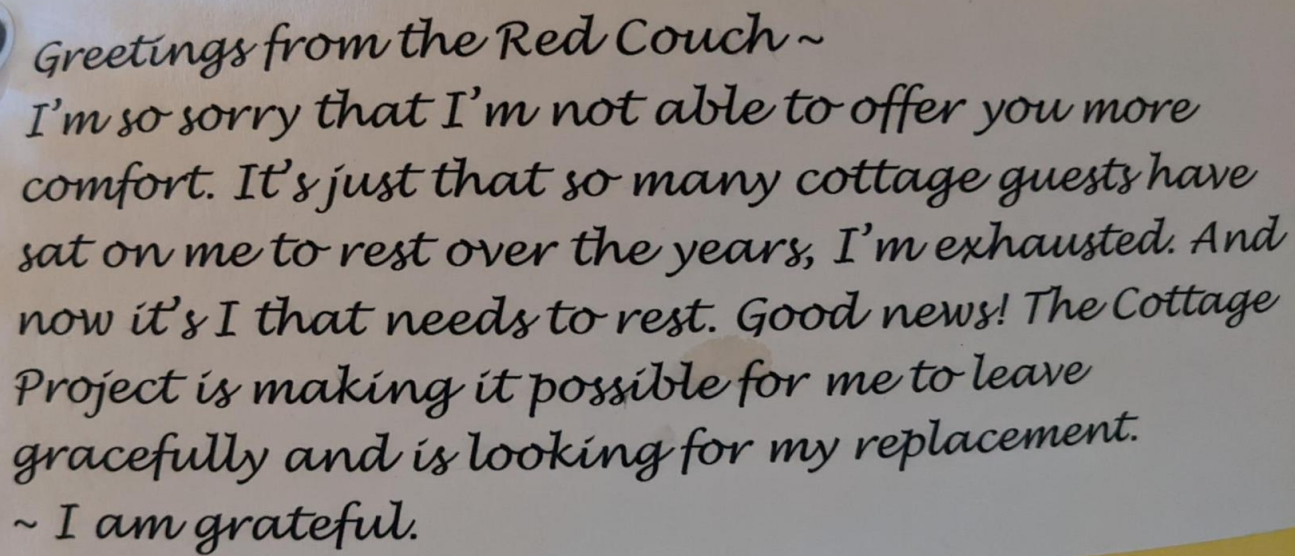 Greetings from the Red Couch ~
I'm so sorry that I'm not able to offer you more
comfort. It's just that so many cottage guests have
sat on me to rest over the years, I'm exhausted. And
now it's I that needs to rest. Good news! The Cottage
Project is making it possible for me to leave
gracefully and is looking for my replacement.
~ I am grateful.